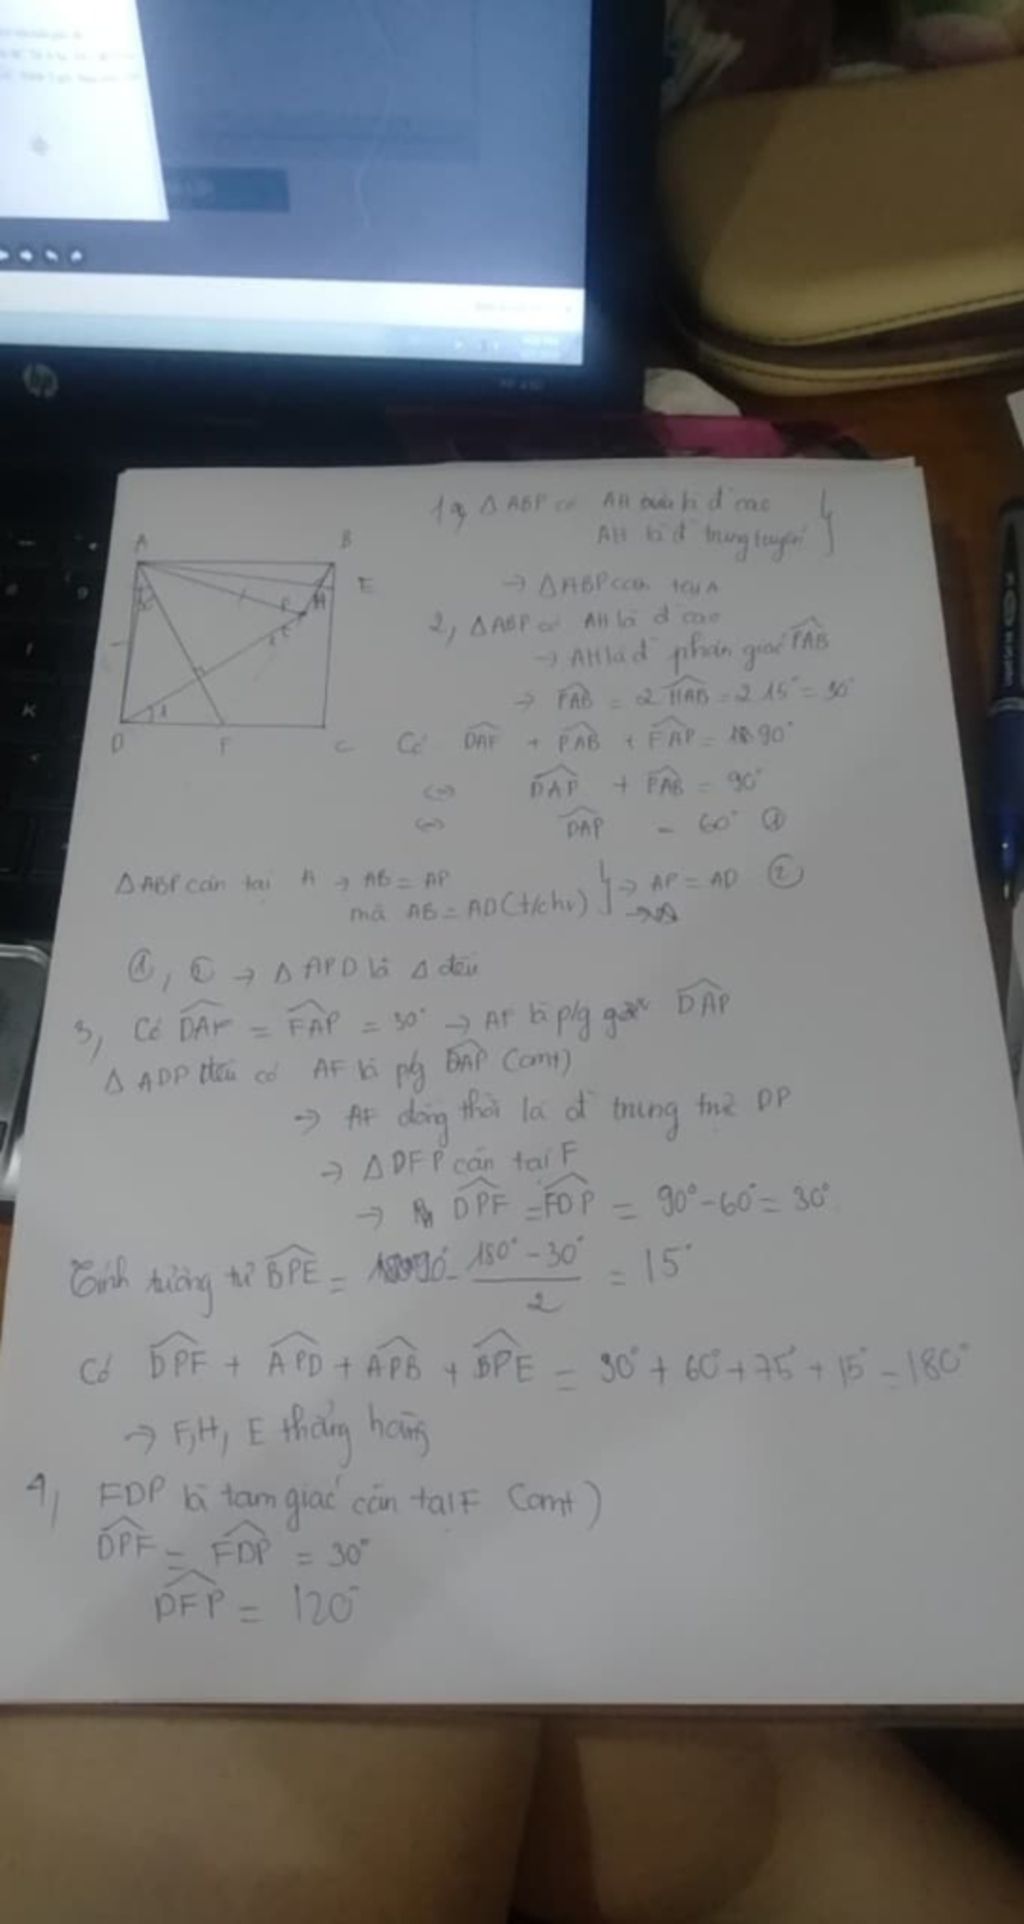 hp
A
B
E
P
H
D
F
C
1, △ABP có AH là đ cao
AH là đ trung tuyến
→ △ABP cân tại A
2, △ABP có AH là đ cao
→ AH là đ phân giác PAB
→ PAB = 2 HAB = 2.15° = 30°
Có DAF + PAB + FAP = 90°
⇔ DAP + PAB = 90°
⇔ DAP = 60° ①
△ABP cân tại A → AB = AP
mà AB = AD (t/c hv) } → AP = AD ②
①, ② → △APD là △ đều
3, Có DAF = FAP = 30° → AF là p/g góc DAP
△ADP đều có AF là p/g DAP (cmt)
→ AF đồng thời là đ trung trực DP
→ △DFP cân tại F
→ DPF = FDP = 90° - 60° = 30°
Tính tương tự BPE = 180° - 30° / 2 = 15°
Có DPF + APD + APB + BPE = 30° + 60° + 75° + 15° = 180°
→ F, H, E thẳng hàng
4, FDP là tam giác cân tại F (cmt)
DPF = FDP = 30°
DFP = 120°